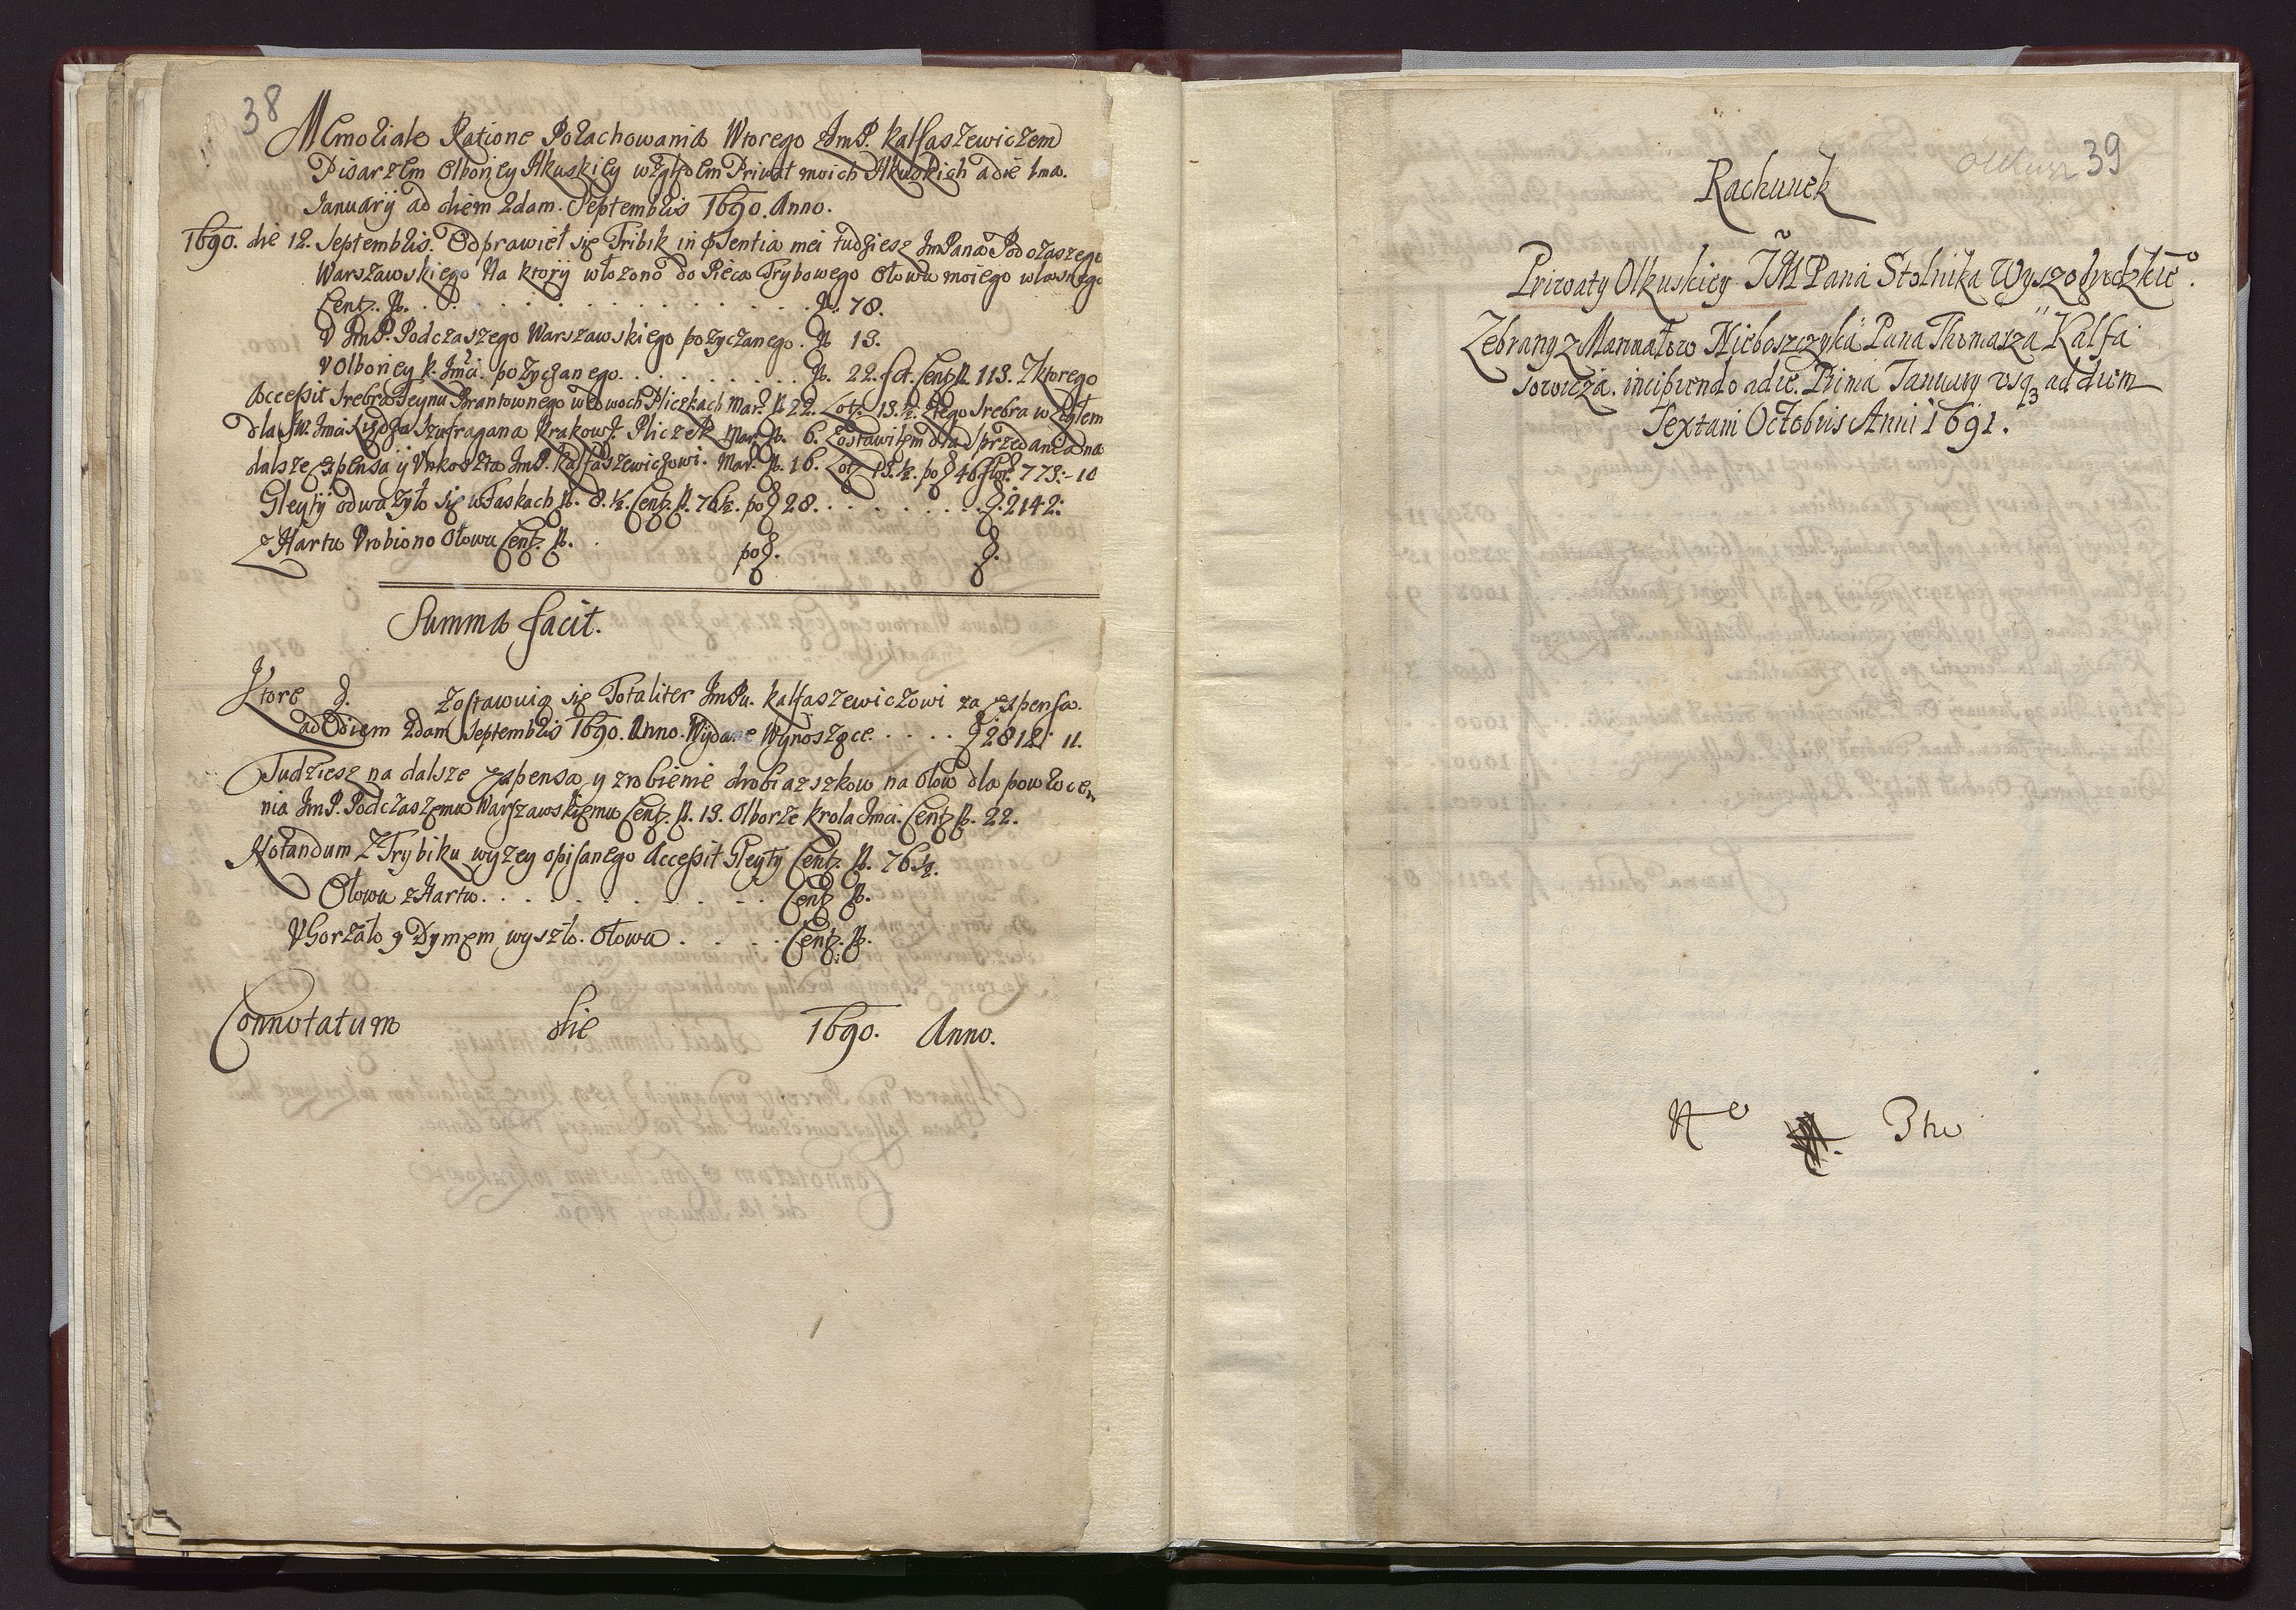 38
Memoriale Ratione Porachowania Wtorego z JmP. Kalfaszewiczem
Pisarzem Olborney Ilkuskiey względem Priwat moich Ilkuskich a die 1ma.
Januarij ad diem 2dam. Septembris 1690. Anno.
1690. die 12. Septembris. Odprawieł się Tribik in psentia mei tudziesz JmPana Podczaszego
Warszawskiego Na ktory włozono do Pieca Trybowego Ołowu moiego własnego
Cent. N. . . . . . . . . . . . . . . N. 78.
V JmP. Podczaszego Warszawskiego pozyczanego. N 13.
V Olborney K. Jmći. pozyczanego. . . . . . . . N. 22. fct. Cent. N. 113. Z ktorego
Accessit Srebra Feynu Brantownego w dwoch Pliczkach Mar. N 22. Lot. 13.½. Z tego Srebra wziąłem
dla JW. Jmci Xiędza Szufragana Krakows. Pliczek Mar. N. 6. Zostawiłem dla sprzedania na
dalsze Expensa y Vnkoszta JmP. Kalfaszewiczowi. Mar. N. 16. Lot. 13.½. po f 46. flor. 773:-10
Gleyty odwazyło się w Faskach N. 8.½. Cent. N. 76½. po f 28. . . . . . . . . . f. 2142:
z Hartu Vrobiono Ołowu Cent. N. . po f. f.
Summa facit.
Ktore f. Zostawuią się Totaliter JmPu. Kalfaszewiczowi za Expensa.
ad Diem 2dam Septembris 1690. Anno. Wydane Wynoszące. . . . . f 2812: 11.
Tudziesz na dalsze Expensa y zrobienie drobiazszkow na Ołow dla powroce,,
nia JmP. Podczaszemu Warszawskiemu Cent. N. 13. Olborze Krola Jmci. Cent N. 22.
Notandum Z Trybiku wyzey opisanego Accessit Gleyty Cent. N. 76.½.
Ołowu z Hartu. . . . . . . . . . . . Cent N.
Vgorzało y Dymem wyszło. Ołowu . . . . Cent. N.
Connotatum die 1690. Anno.
Olkusz 39
Rachunek
Priwaty Olkuskiey JM Pana Stolnika Wyszogrodzkieo.
Zebrany z Manuałow Nieboszczyka Pana Thomasza Kalfa
sowicza. incipiendo a die. Prima January vsq3 ad diem
Sextam Octobris Anni 1691.